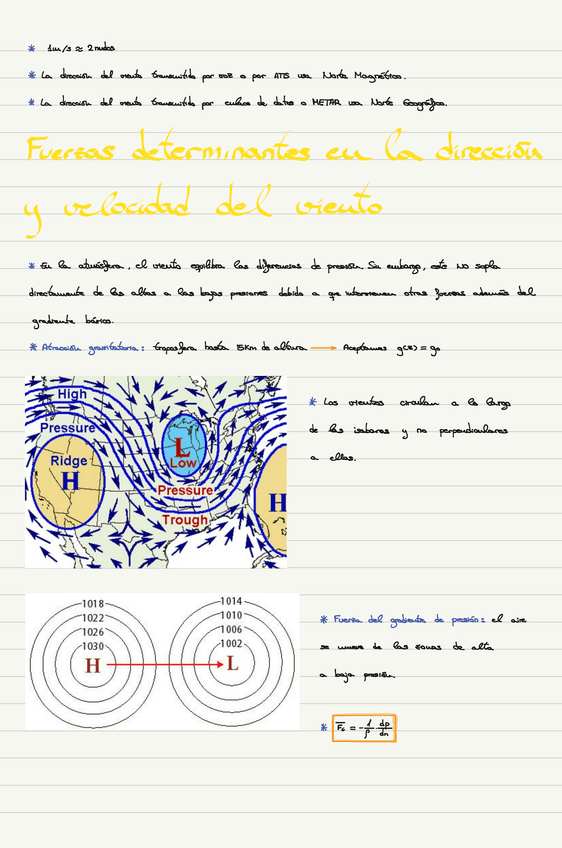 * 1m/s ≈ 2 nudos
* La dirección del viento transmitido por voz o por ATIS usa Norte Magnético.
* La dirección del viento transmitido por cultivos de datos o METAR usa Norte Geográfico.
Fuerzas determinantes en la dirección
y velocidad del viento
* En la atmósfera, el viento equilibra las diferencias de presión. Sin embargo, este NO sopla
directamente de las altas a las bajas presiones debido a que intervienen otras fuerzas además del
gradiente bárico.
* Atracción gravitatoria: troposfera hasta 15Km de altura → Aceptamos g(z) = g₀
High
Pressure
Ridge
H
L
Low
Pressure
Trough
H
* Los vientos circulan a lo largo
de las isobaras y no perpendiculares
a ellas.
1018
1022
1026
1030
H
1014
1010
1006
1002
L
* Fuerza del gradiente de presión: el aire
se mueve de las zonas de alta
a baja presión.
* F_G = -1/ρ · dp/dn